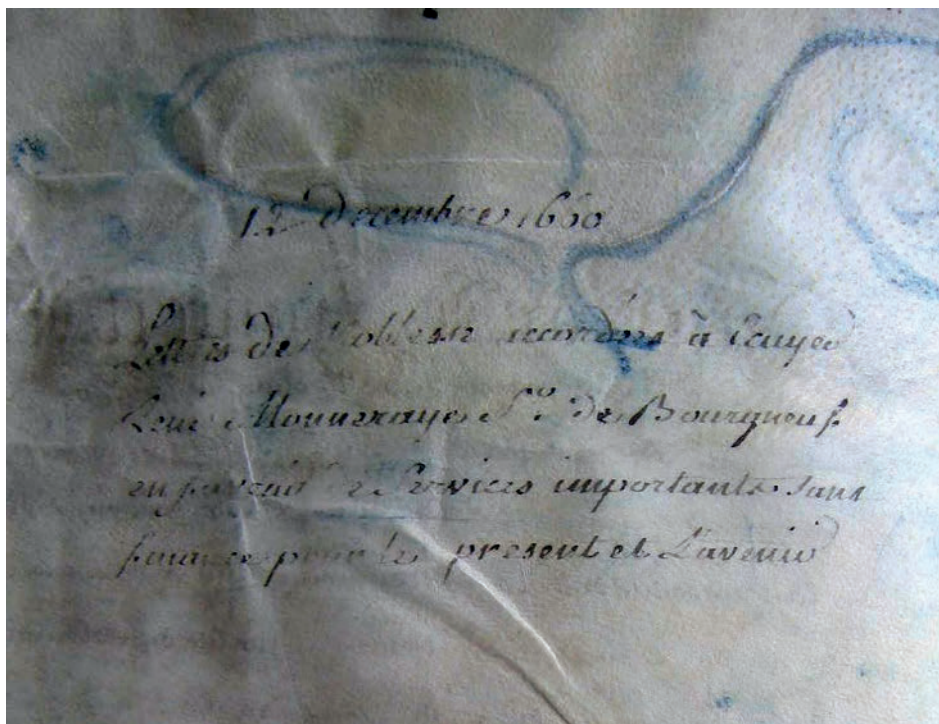 decembre 1660
Lettres de Noblesse accordées à Ecuyer
René Monneraye Sr. de Bourgneuf
en faveur de Services importants sans
finances pour le present et L'avenir